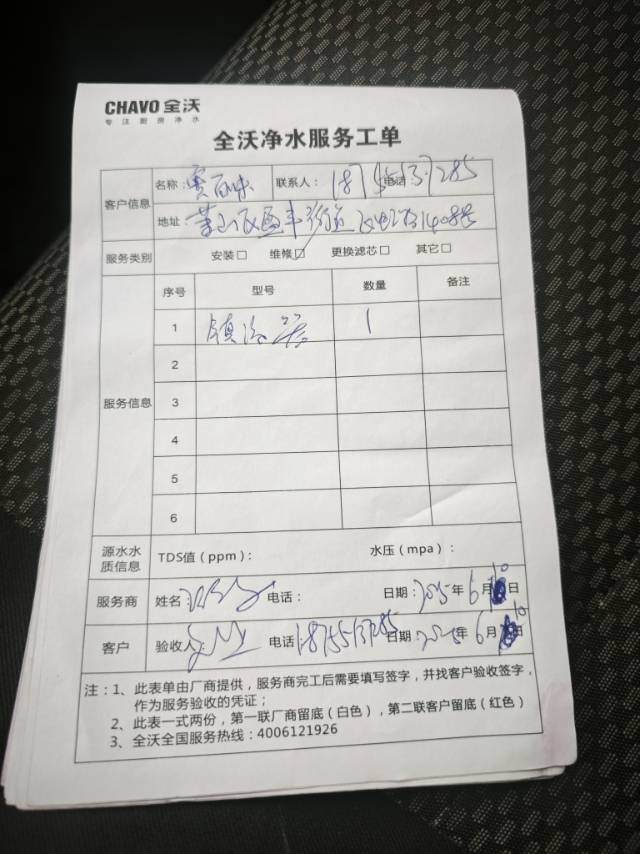 CHAVO 全沃
专注厨房净水
全沃净水服务工单
客户信息
名称： 联系人： 电话
地址：
服务类别 安装□ 维修□ 更换滤芯□ 其它□
服务信息
序号 型号 数量 备注
1 1
2
3
4
5
6
源水水质信息 TDS值（ppm）： 水压（mpa）：
服务商 姓名 电话： 日期：2025年6月10日
客户 验收人 电话18755137285 日期：2025年6月10日
注：1、此表单由厂商提供，服务商完工后需要填写签字，并找客户验收签字，
作为服务验收的凭证；
2、此表一式两份，第一联厂商留底（白色），第二联客户留底（红色）
3、全沃全国服务热线：4006121926